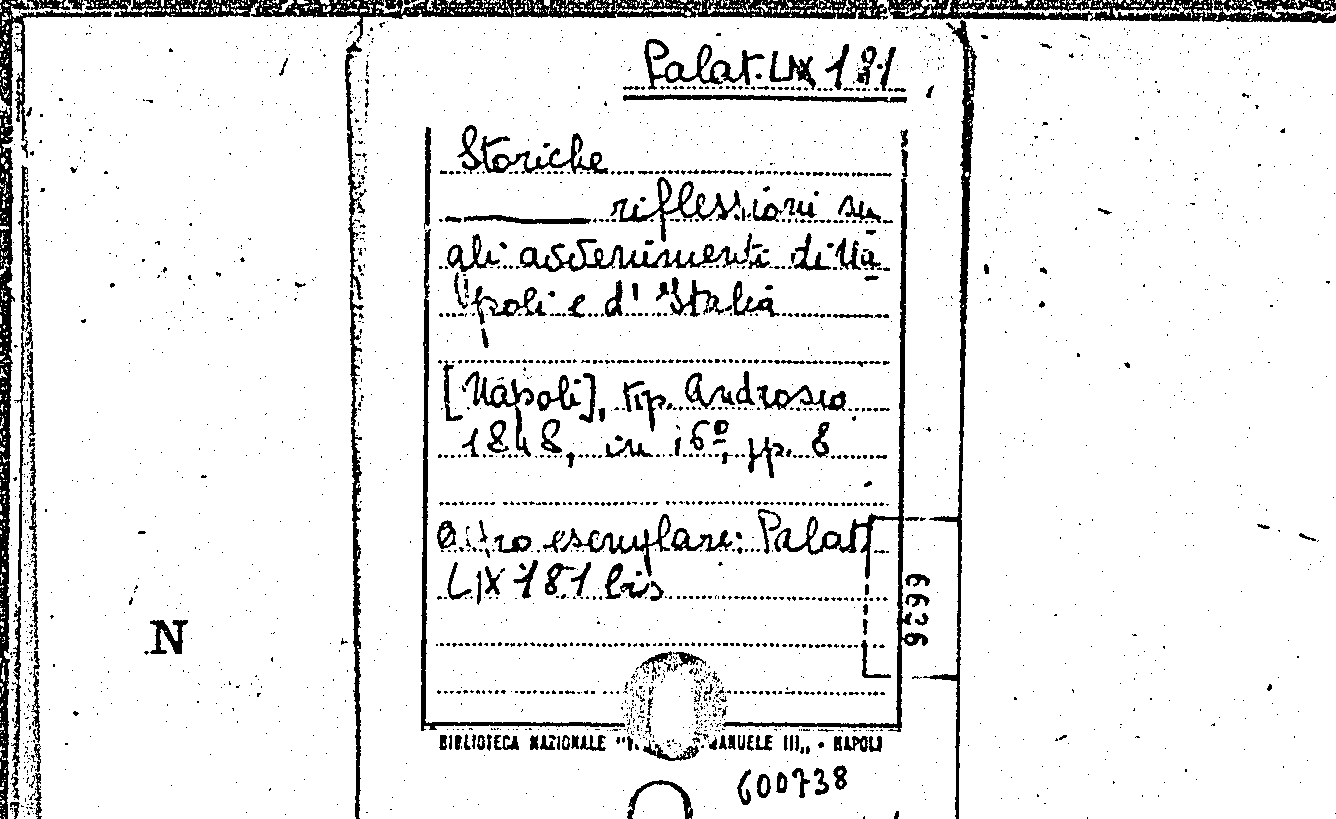 Palat. LIX 181
Storiche
riflessioni su
gli avvenimenti di Na
poli e d'Italia
[Napoli], tip. Androsio
1848, in 16º, pp. 8
Altro esemplare: Palat
LIX 181 bis
6626
N
BIBLIOTECA NAZIONALE "V ANUELE III,, - NAPOLI
600738